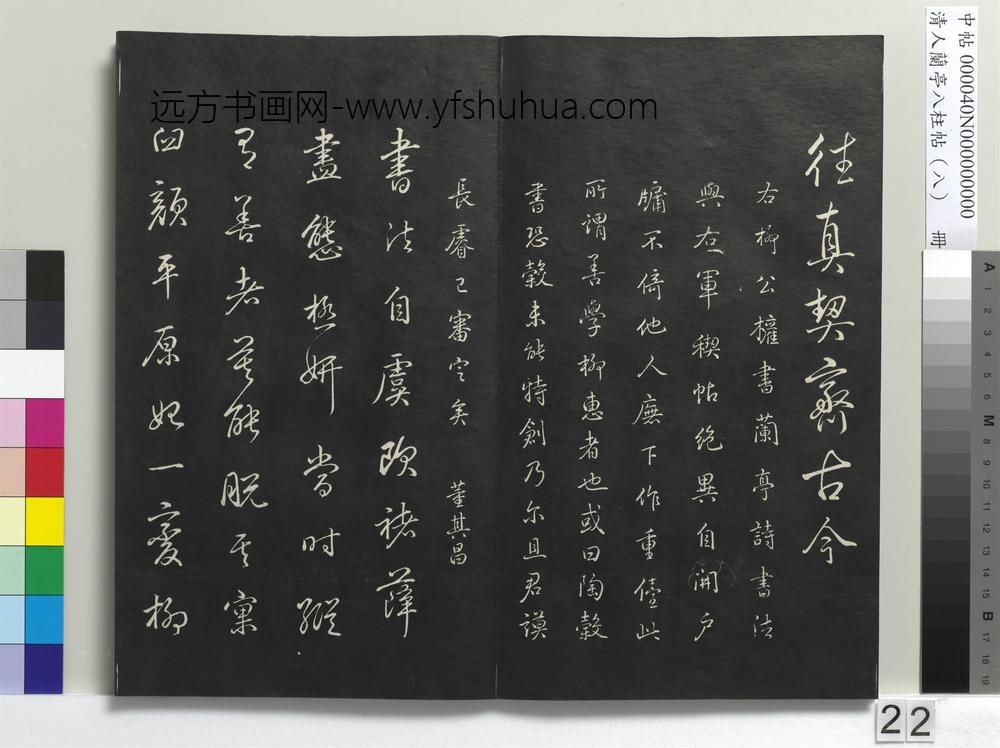 远方书画网-www.yfshuhua.com
中帖 000040N000000000
清人蘭亭八柱帖（八） 冊
往真契齊古今
右柳公權書蘭亭詩書法
與右軍禊帖絶異自開户
牖不倚他人廡下作重儓此
所謂善學柳惠者也或曰陶穀
書恐穀未能特創乃尔且君謨
長睿已審定矣 董其昌
書法自虞歐褚薛
盡態極妍當时縱
有善者莫能脱其窠
臼顔平原始一變柳
A 1 2 3 4 5 6 M 8 9 10 11 12 13 14 15 B 17 18 19
22